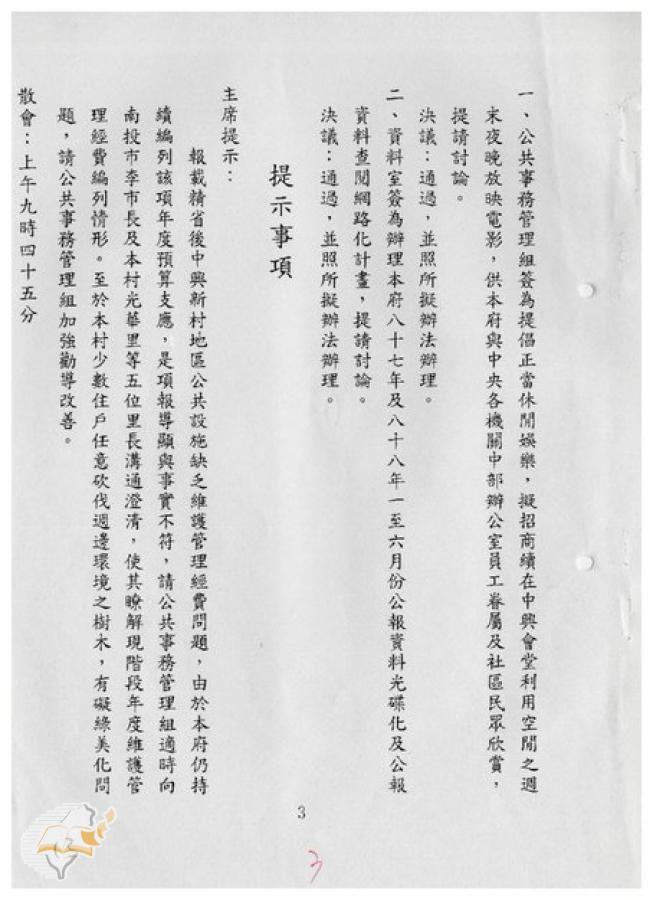 一、公共事務管理組簽為提倡正當休閒娛樂，擬招商續在中興會堂利用空閒之週
末夜晚放映電影，供本府與中央各機關中部辦公室員工眷屬及社區民眾欣賞，
提請討論。
決議：通過，並照所擬辦法辦理。
二、資料室簽為辦理本府八十七年及八十八年一至六月份公報資料光碟化及公報
資料查閱網路化計畫，提請討論。
決議：通過，並照所擬辦法辦理。
提示事項
主席提示：
報載精省後中興新村地區公共設施缺乏維護管理經費問題，由於本府仍持
續編列該項年度預算支應，是項報導顯與事實不符，請公共事務管理組適時向
南投市李市長及本村光華里等五位里長溝通澄清，使其瞭解現階段年度維護管
理經費編列情形。至於本村少數住戶任意砍伐週邊環境之樹木，有礙綠美化問
題，請公共事務管理組加強勸導改善。
散會：上午九時四十五分
3
3